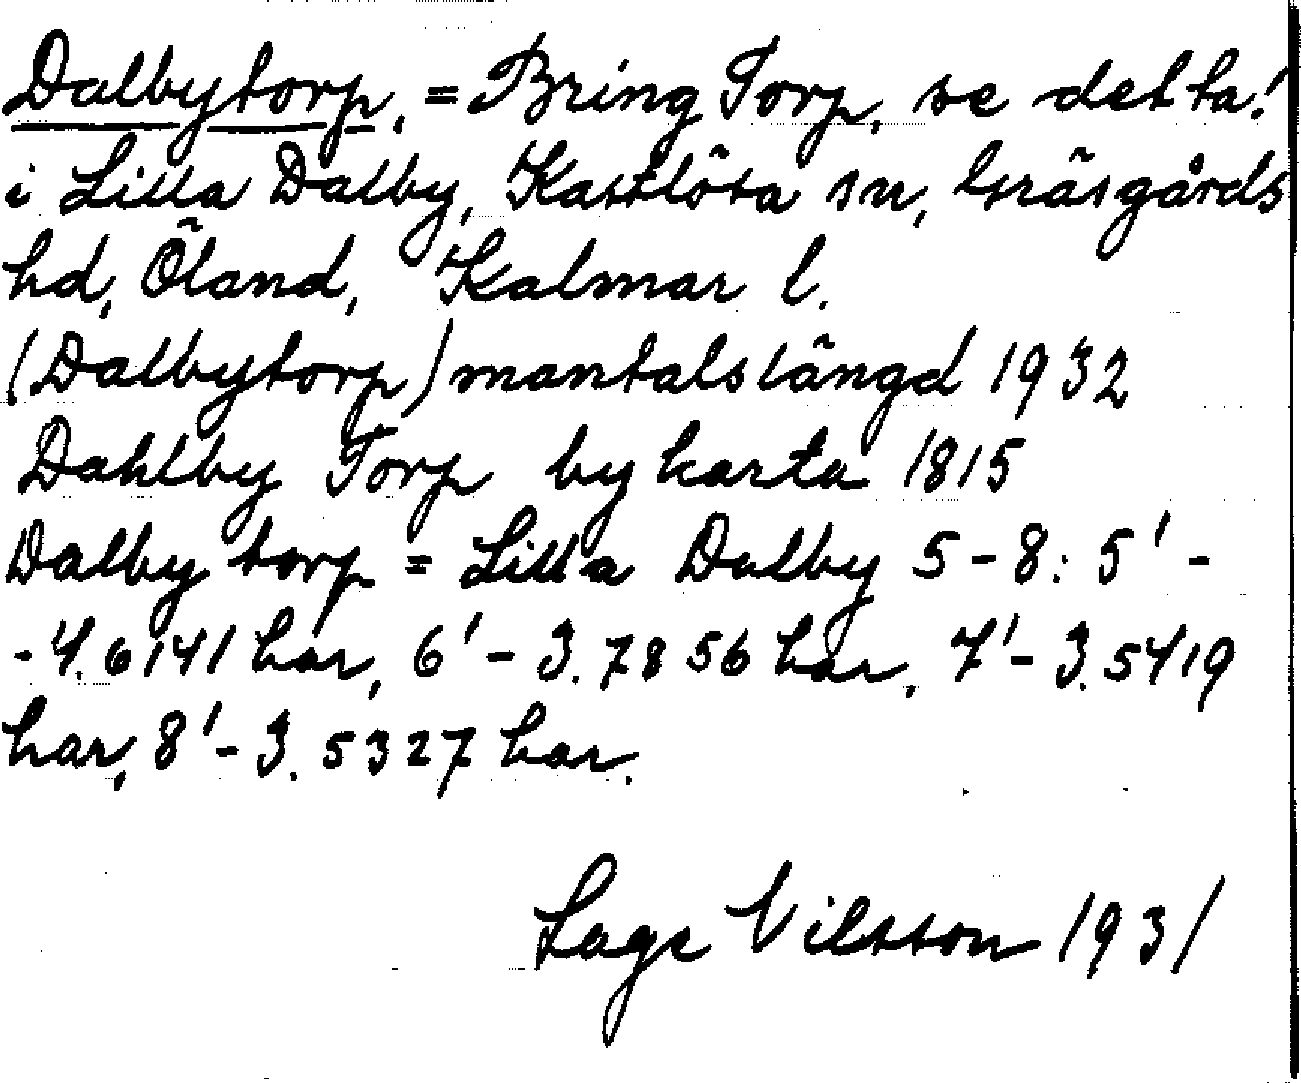 Dalbytorp, = Bring Torp, se detta!
i Lilla Dalby, Kastlösa sn, Gräsgårds
hd, Öland, Kalmar l.
(Dalbytorp) mantalslängd 1932
Dahlby Torp by karta 1815
Dalby torp = Lilla Dalby 5-8: 5' -
- 4.6141 har, 6' - 3.7856 har, 7' - 3.5419
har, 8' - 3.5327 har.
Lage Nilsson 1931